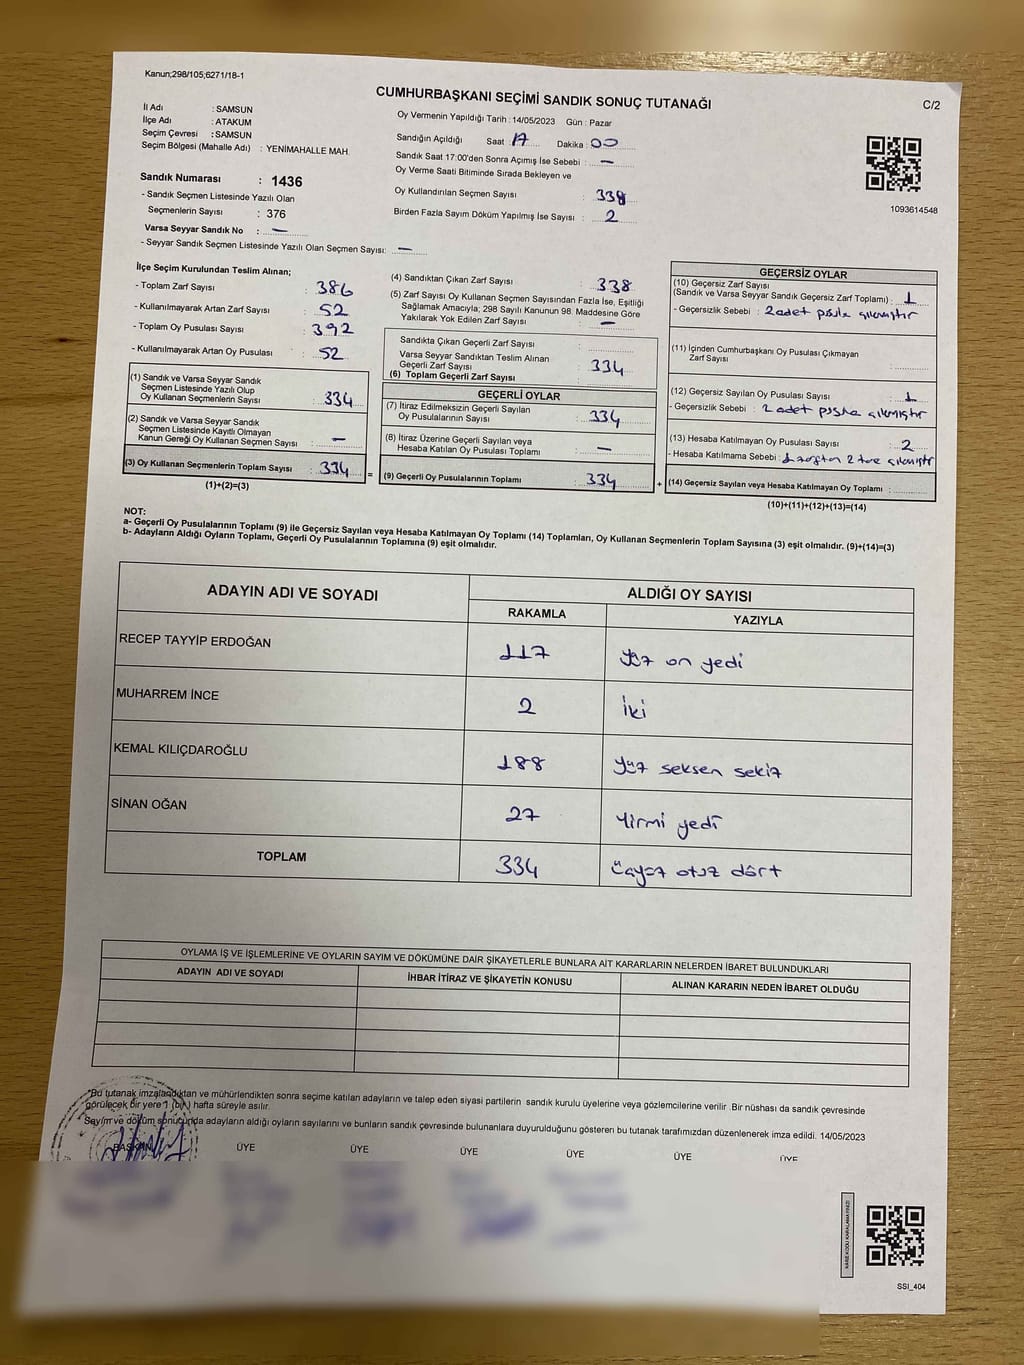 Kanun;298/105,6271/18-1
CUMHURBAŞKANI SEÇİMİ SANDIK SONUÇ TUTANAĞI
C/2
İl Adı : SAMSUN
İlçe Adı : ATAKUM
Seçim Çevresi : SAMSUN
Seçim Bölgesi (Mahalle Adı) : YENİMAHALLE MAH.
Sandık Numarası : 1436
- Sandık Seçmen Listesinde Yazılı Olan
Seçmenlerin Sayısı : 376
Varsa Seyyar Sandık No : —
- Seyyar Sandık Seçmen Listesinde Yazılı Olan Seçmen Sayısı: —
Oy Vermenin Yapıldığı Tarih : 14/05/2023 Gün : Pazar
Sandığın Açıldığı Saat : 17 Dakika : 00
Sandık Saat 17:00'den Sonra Açımış İse Sebebi : —
Oy Verme Saati Bitiminde Sırada Bekleyen ve
Oy Kullandırılan Seçmen Sayısı : 338
Birden Fazla Sayım Döküm Yapılmış İse Sayısı : 2
1093614548
İlçe Seçim Kurulundan Teslim Alınan;
- Toplam Zarf Sayısı : 386
- Kullanılmayarak Artan Zarf Sayısı : 52
- Toplam Oy Pusulası Sayısı : 392
- Kullanılmayarak Artan Oy Pusulası : 52
(1) Sandık ve Varsa Seyyar Sandık
Seçmen Listesinde Yazılı Olup
Oy Kullanan Seçmenlerin Sayısı : 334
(2) Sandık ve Varsa Seyyar Sandık
Seçmen Listesinde Kayıtlı Olmayan
Kanun Gereği Oy Kullanan Seçmen Sayısı : —
(3) Oy Kullanan Seçmenlerin Toplam Sayısı : 334
(1)+(2)=(3)
(4) Sandıktan Çıkan Zarf Sayısı : 338
(5) Zarf Sayısı Oy Kullanan Seçmen Sayısından Fazla İse, Eşitliği
Sağlamak Amacıyla; 298 Sayılı Kanunun 98. Maddesine Göre
Yakılarak Yok Edilen Zarf Sayısı : —
Sandıkta Çıkan Geçerli Zarf Sayısı :
Varsa Seyyar Sandıktan Teslim Alınan
Geçerli Zarf Sayısı :
(6) Toplam Geçerli Zarf Sayısı : 334
GEÇERLİ OYLAR
(7) İtiraz Edilmeksizin Geçerli Sayılan
Oy Pusulalarının Sayısı : 334
(8) İtiraz Üzerine Geçerli Sayılan veya
Hesaba Katılan Oy Pusulası Toplamı : —
(9) Geçerli Oy Pusulalarının Toplamı : 334
=
+
GEÇERSİZ OYLAR
(10) Geçersiz Zarf Sayısı
(Sandık ve Varsa Seyyar Sandık Geçersiz Zarf Toplamı) : 1
- Geçersizlik Sebebi : 2 adet pusula çıkmıştır
(11) İçinden Cumhurbaşkanı Oy Pusulası Çıkmayan
Zarf Sayısı :
(12) Geçersiz Sayılan Oy Pusulası Sayısı : 1
- Geçersizlik Sebebi : 2 adet pusula çıkmıştır
(13) Hesaba Katılmayan Oy Pusulası Sayısı : 2
- Hesaba Katılmama Sebebi : 1 zarftan 2 tane çıkmıştır
(14) Geçersiz Sayılan veya Hesaba Katılmayan Oy Toplamı :
(10)+(11)+(12)+(13)=(14)
NOT:
a- Geçerli Oy Pusulalarının Toplamı (9) ile Geçersiz Sayılan veya Hesaba Katılmayan Oy Toplamı (14) Toplamları, Oy Kullanan Seçmenlerin Toplam Sayısına (3) eşit olmalıdır. (9)+(14)=(3)
b- Adayların Aldığı Oyların Toplamı, Geçerli Oy Pusulalarının Toplamına (9) eşit olmalıdır.
ADAYIN ADI VE SOYADI
ALDIĞI OY SAYISI
RAKAMLA YAZIYLA
RECEP TAYYİP ERDOĞAN 117 yüz on yedi
MUHARREM İNCE 2 iki
KEMAL KILIÇDAROĞLU 188 yüz seksen sekiz
SİNAN OĞAN 27 yirmi yedi
TOPLAM 334 üçyüz otuz dört
OYLAMA İŞ VE İŞLEMLERİNE VE OYLARIN SAYIM VE DÖKÜMÜNE DAİR ŞİKAYETLERLE BUNLARA AİT KARARLARIN NELERDEN İBARET BULUNDUKLARI
ADAYIN ADI VE SOYADI İHBAR İTİRAZ VE ŞİKAYETİN KONUSU ALINAN KARARIN NEDEN İBARET OLDUĞU
"Bu tutanak imzalandıktan ve mühürlendikten sonra seçime katılan adayların ve talep eden siyasi partilerin sandık kurulu üyelerine veya gözlemcilerine verilir .Bir nüshası da sandık çevresinde
görülecek bir yere 1 (bir) hafta süreyle asılır.
Sayım ve döküm sonucunda adayların aldığı oyların sayılarını ve bunların sandık çevresinde bulunanlara duyurulduğunu gösteren bu tutanak tarafımızdan düzenlenerek imza edildi. 14/05/2023
BAŞKAN ÜYE ÜYE ÜYE ÜYE ÜYE ÜYE
KARE KODU KARALAMAYINIZ!
SSI_404